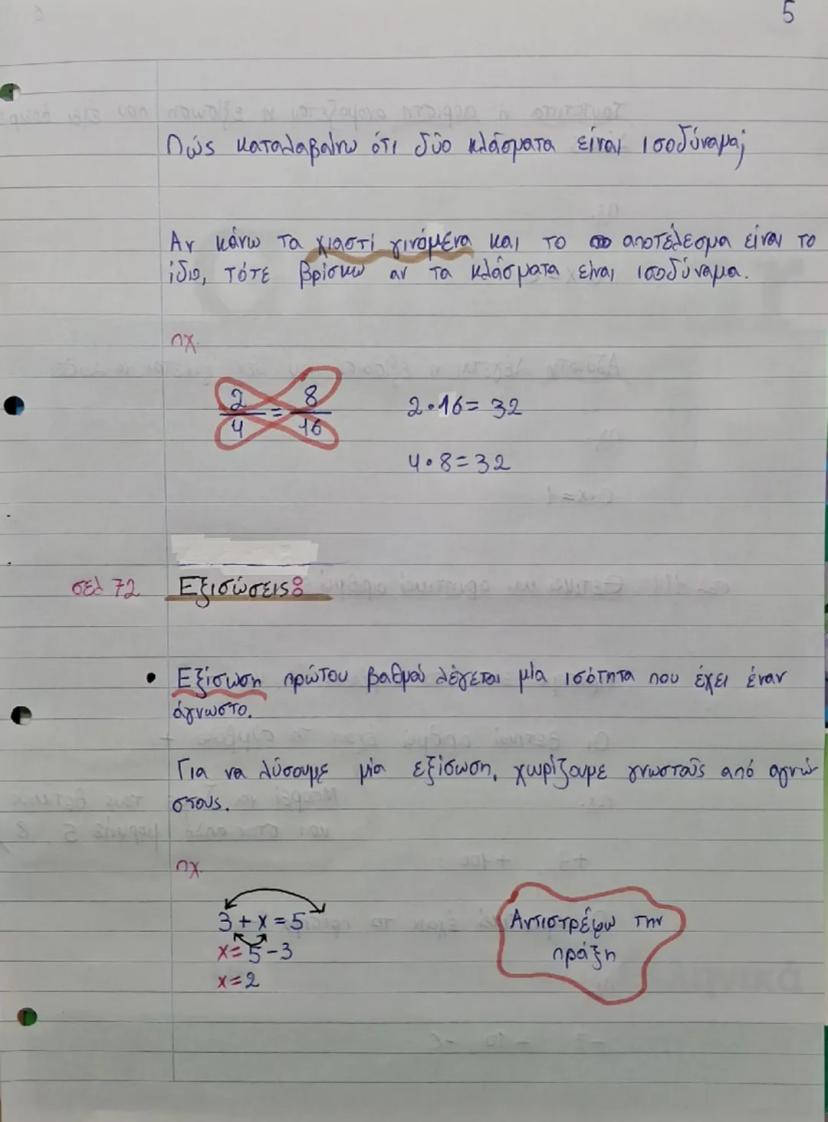 5
Πώς καταλαβαίνω ότι δύο κλάσματα είναι ισοδύναμα;
Αν κάνω τα χιαστί γινόμενα και το αποτέλεσμα είναι το
ίδιο, τότε βρίσκω αν τα κλάσματα είναι ισοδύναμα.
πχ.
2/4 = 8/16 2·16= 32
4·8=32
σελ 72 Εξισώσεις:
• Εξίσωση πρώτου βαθμού λέγεται μία ισότητα που έχει έναν
άγνωστο.
Για να λύσουμε μία εξίσωση, χωρίζουμε γνωστούς από αγνώ
στους.
πχ.
3+x=5 Αντιστρέφω την
x=5-3 πράξη
x=2